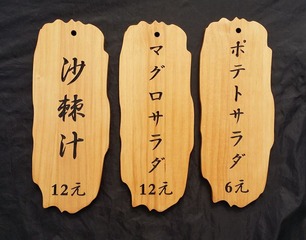 沙棘汁
12元
マグロサラダ
12元
ポテトサラダ
6元